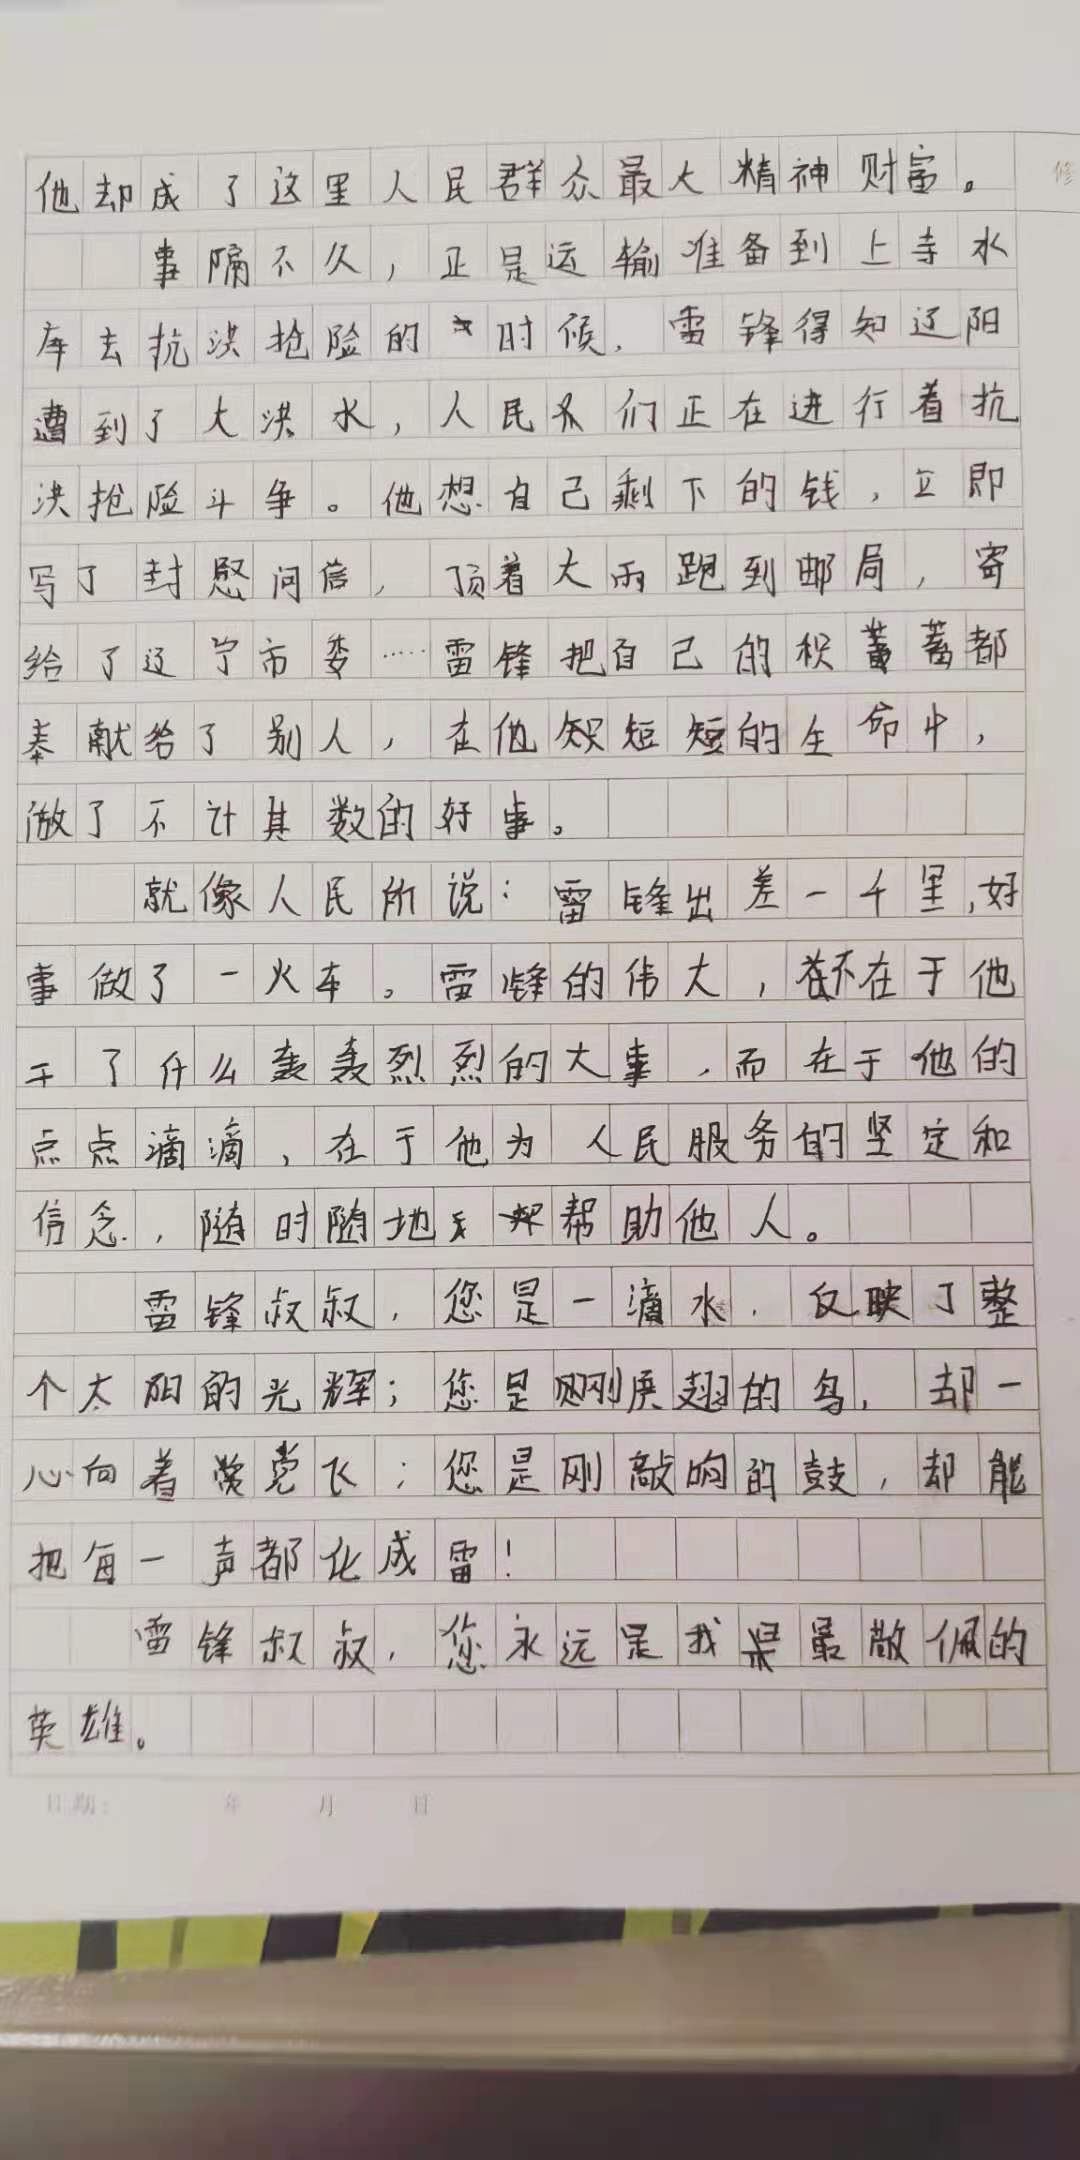 修
他却成了这里人民群众最大精神财富。
事隔不久，正是运输准备到上寺水
库去抗洪抢险的时候，雷锋得知辽阳
遭到了大洪水，人民们正在进行着抗
洪抢险斗争。他想自己剩下的钱，立即
写了封慰问信，顶着大雨跑到邮局，寄
给了辽宁市委……雷锋把自己的积蓄都
奉献给了别人，在他短短的生命中，
做了不计其数的好事。
就像人民所说：雷锋出差一千里，好
事做了一火车。雷锋的伟大，不在于他
干了什么轰轰烈烈的大事，而在于他的
点点滴滴，在于他为人民服务的坚定和
信念，随时随地帮助他人。
雷锋叔叔，您是一滴水，反映了整
个太阳的光辉；您是刚展翅的鸟，却一
心向着党飞；您是刚敲响的鼓，却能
把每一声都化成雷！
雷锋叔叔，您永远是我最敬佩的
英雄。
日期：　年　月　日